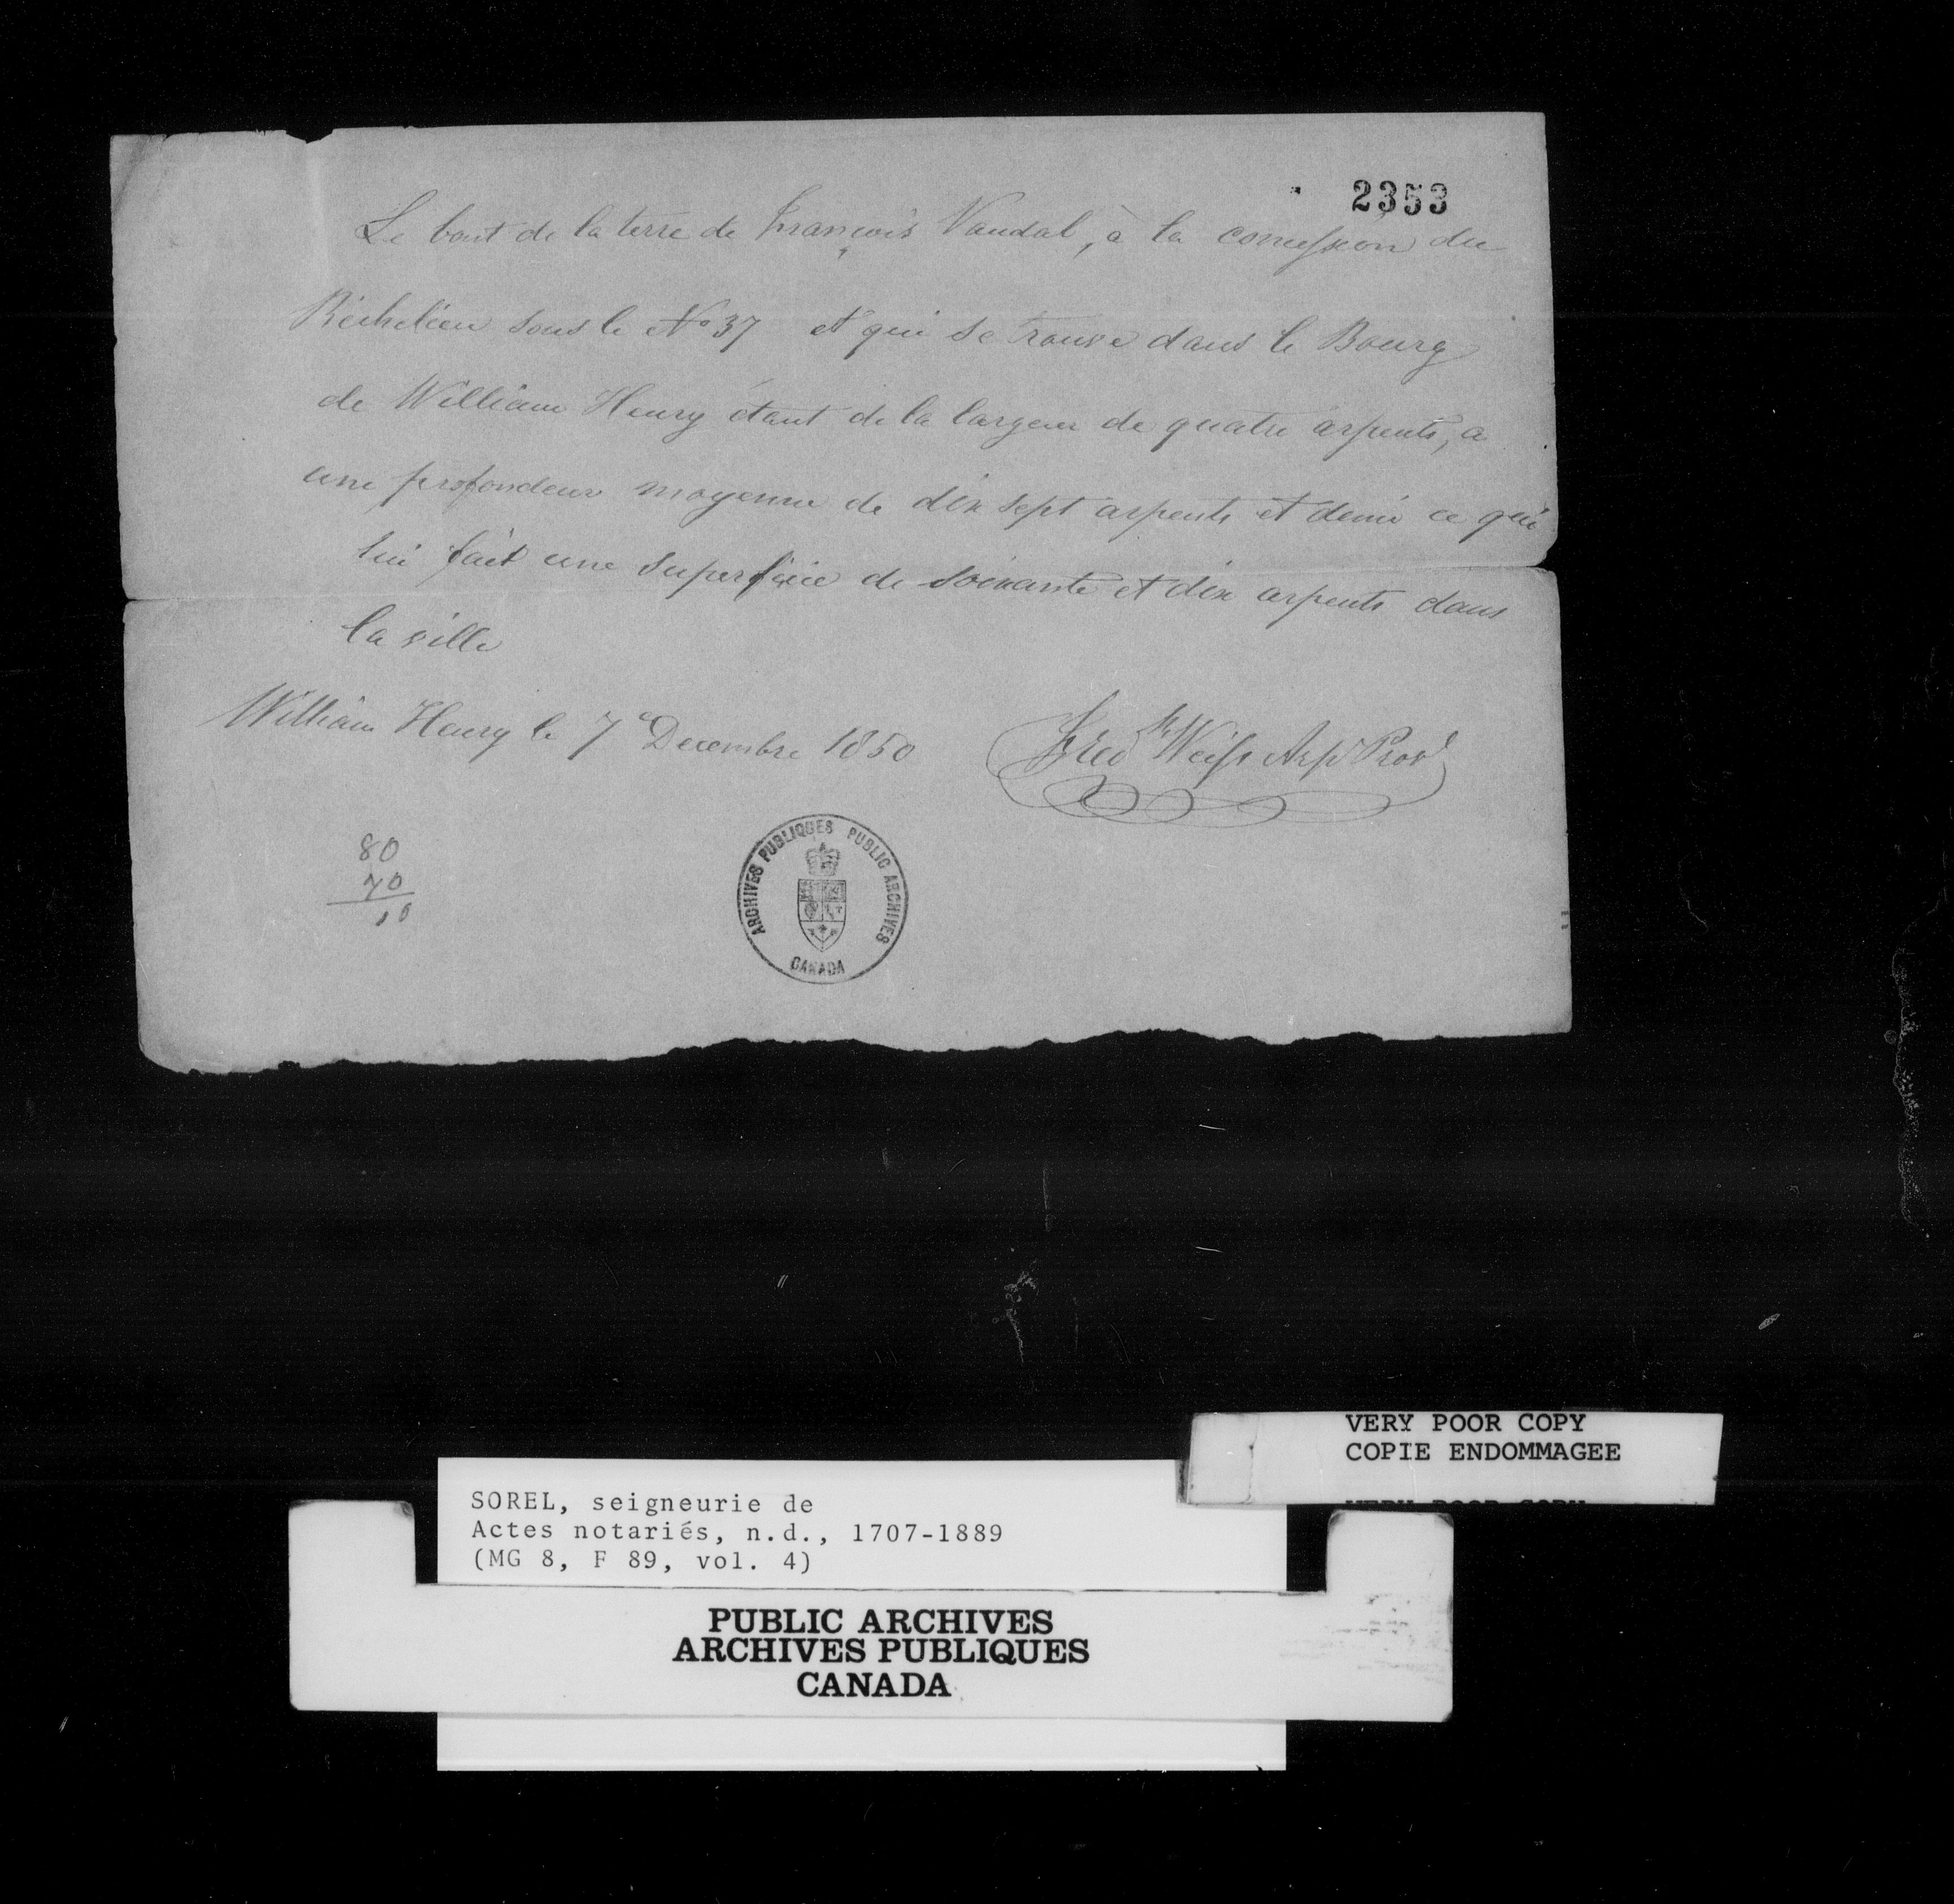 2353
Le bout de la terre de François Vandal, à la concession du
Richelieu sous le No 37 et qui se trouve dans le Bourg
de William Henry étant de la largeur de quatre arpents, a
une profondeur moyenne de dix sept arpents et demi ce qui
lui fait une superficie de soixante et dix arpents dans
la ville
William Henry le 7e Decembre 1850
Fredk Weiss Arpr Provl
80
70
10
ARCHIVES PUBLIQUES PUBLIC ARCHIVES
CANADA
VERY POOR COPY
COPIE ENDOMMAGEE
VERY POOR COPY
SOREL, seigneurie de
Actes notariés, n.d., 1707-1889
(MG 8, F 89, vol. 4)
PUBLIC ARCHIVES
ARCHIVES PUBLIQUES
CANADA